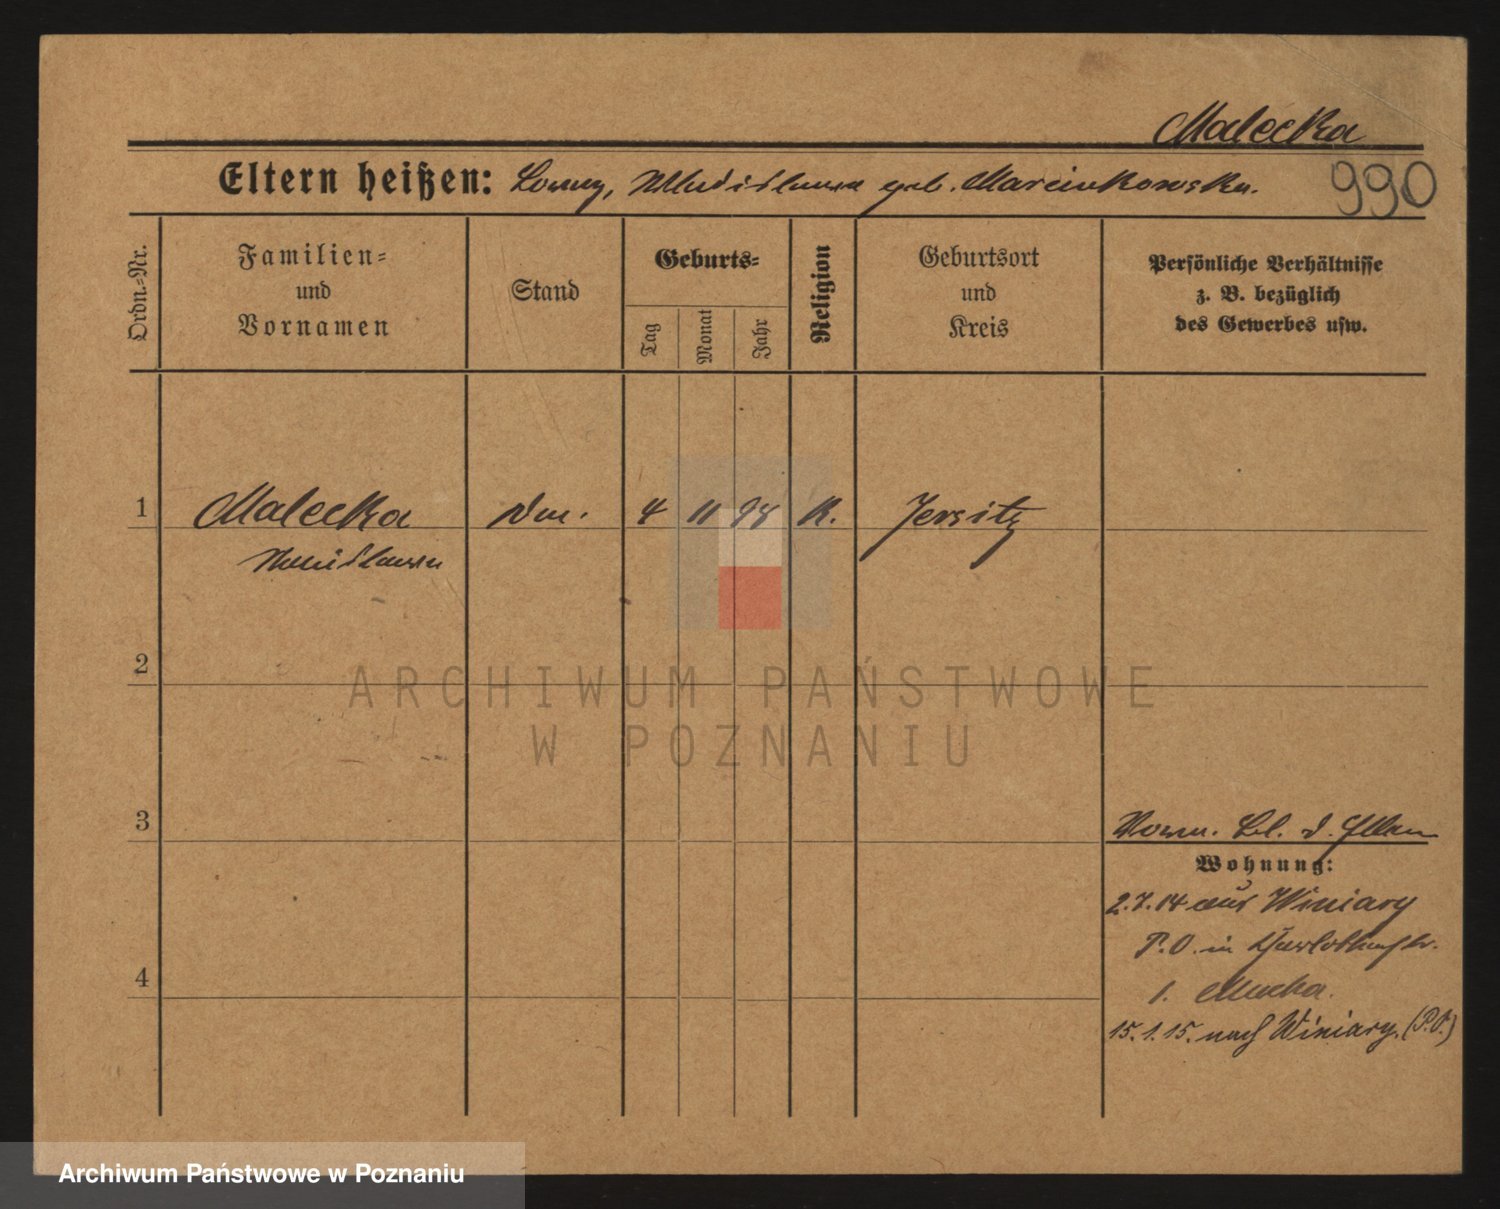 Malecka
Eltern heißen: geb. Marcinkowska.
990
Ordn.-Nr.
Familien-
und
Vornamen
Stand
Geburts-
Tag
Monat
Jahr
Religion
Geburtsort
und
Kreis
Persönliche Verhältnisse
z. B. bezüglich
des Gewerbes usw.
1 Malecka 4 11 98 K. Jersitz
2
ARCHIWUM PAŃSTWOWE
W POZNANIU
3
Wohnung:
2.7.14 aus Winiary
P.O. in
4
1.
15.1.15. nach Winiary. (P.O.)
Archiwum Państwowe w Poznaniu